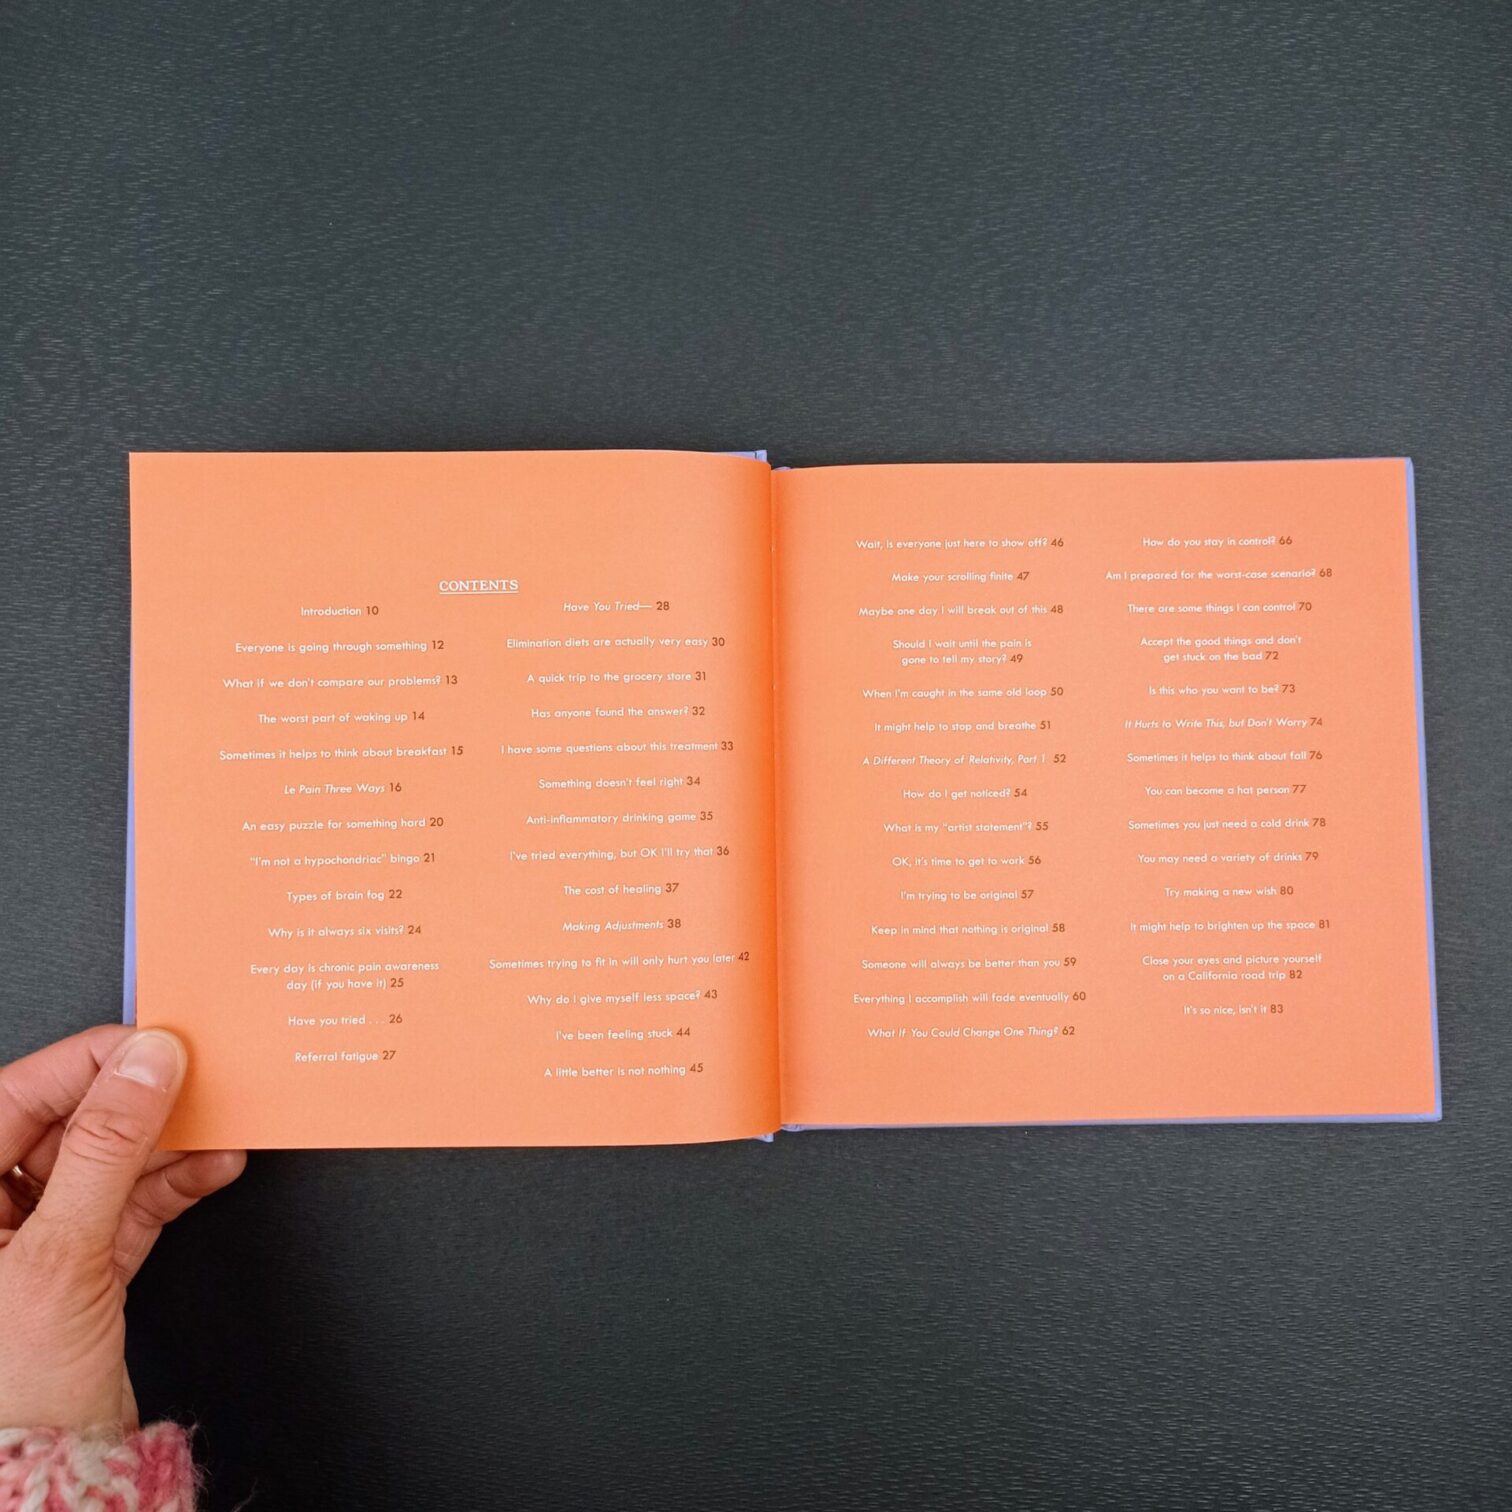 CONTENTS
Introduction 10
Everyone is going through something 12
What if we don't compare our problems? 13
The worst part of waking up 14
Sometimes it helps to think about breakfast 15
Le Pain Three Ways 16
An easy puzzle for something hard 20
"I'm not a hypochondriac" bingo 21
Types of brain fog 22
Why is it always six visits? 24
Every day is chronic pain awareness
day (if you have it) 25
Have you tried . . . 26
Referral fatigue 27
Have You Tried— 28
Elimination diets are actually very easy 30
A quick trip to the grocery store 31
Has anyone found the answer? 32
I have some questions about this treatment 33
Something doesn't feel right 34
Anti-inflammatory drinking game 35
I've tried everything, but OK I'll try that 36
The cost of healing 37
Making Adjustments 38
Sometimes trying to fit in will only hurt you later 42
Why do I give myself less space? 43
I've been feeling stuck 44
A little better is not nothing 45
Wait, is everyone just here to show off? 46
Make your scrolling finite 47
Maybe one day I will break out of this 48
Should I wait until the pain is
gone to tell my story? 49
When I'm caught in the same old loop 50
It might help to stop and breathe 51
A Different Theory of Relativity, Part 1 52
How do I get noticed? 54
What is my "artist statement"? 55
OK, it's time to get to work 56
I'm trying to be original 57
Keep in mind that nothing is original 58
Someone will always be better than you 59
Everything I accomplish will fade eventually 60
What If You Could Change One Thing? 62
How do you stay in control? 66
Am I prepared for the worst-case scenario? 68
There are some things I can control 70
Accept the good things and don't
get stuck on the bad 72
Is this who you want to be? 73
It Hurts to Write This, but Don't Worry 74
Sometimes it helps to think about fall 76
You can become a hat person 77
Sometimes you just need a cold drink 78
You may need a variety of drinks 79
Try making a new wish 80
It might help to brighten up the space 81
Close your eyes and picture yourself
on a California road trip 82
It's so nice, isn't it 83